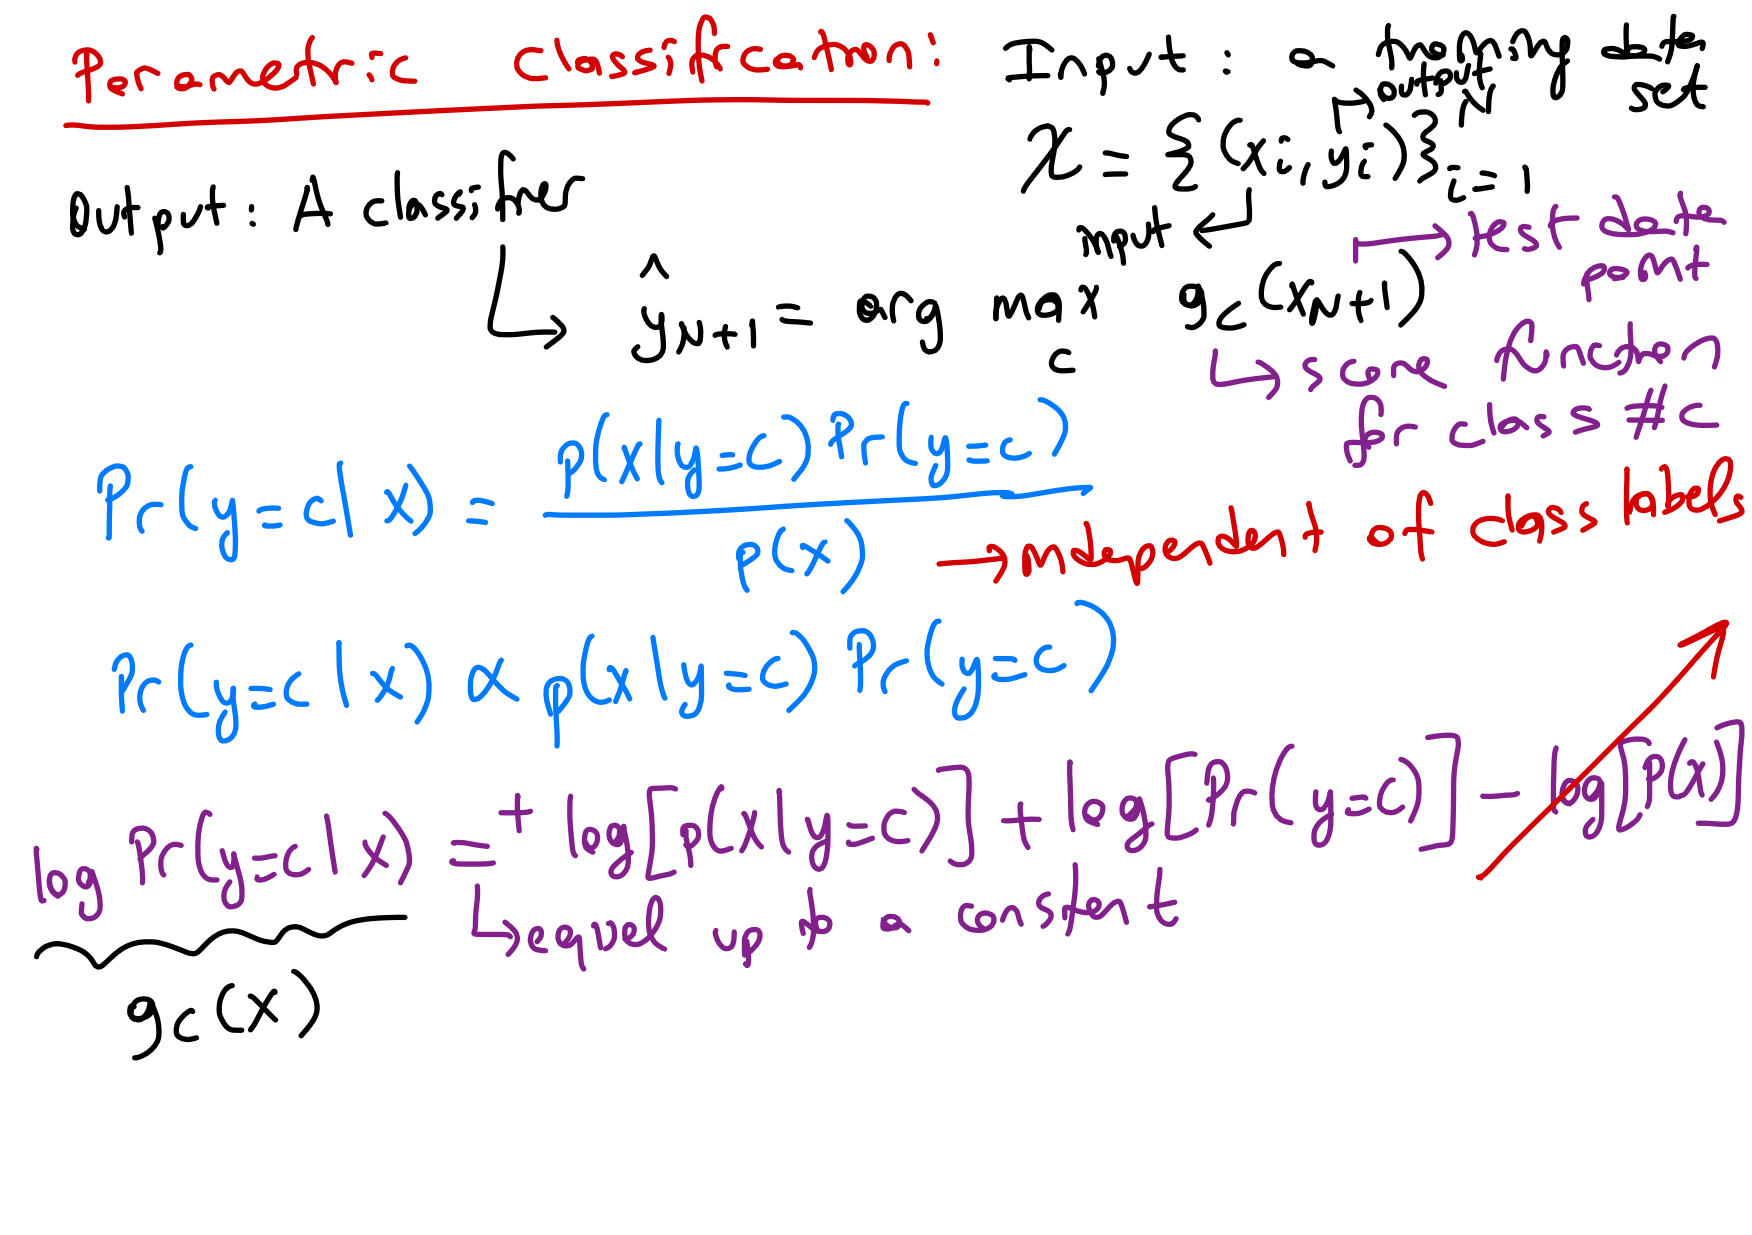 Parametric Classification:
Input: a training data set
𝒳 = {(xi, yi)}_{i=1}^N
output
input
Output: A classifier
ŷ_{N+1} = arg max_c g_c(x_{N+1})
test data point
score function for class #c
Pr(y=c|x) = p(x|y=c) Pr(y=c) / p(x)
→ independent of class labels
Pr(y=c|x) ∝ p(x|y=c) Pr(y=c)
log Pr(y=c|x) =⁺ log[p(x|y=c)] + log[Pr(y=c)] − log[p(x)]
equal up to a constant
g_c(x)